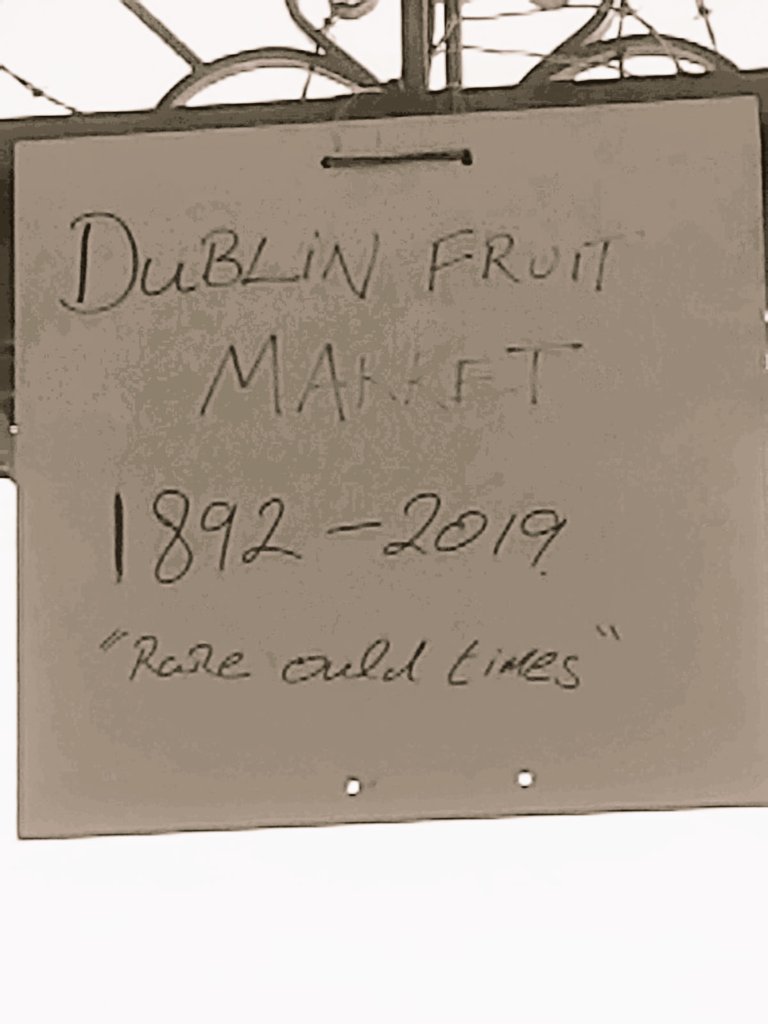 DUBLiN FRUIT
MARKET
1892-2019
"Rare ould times"